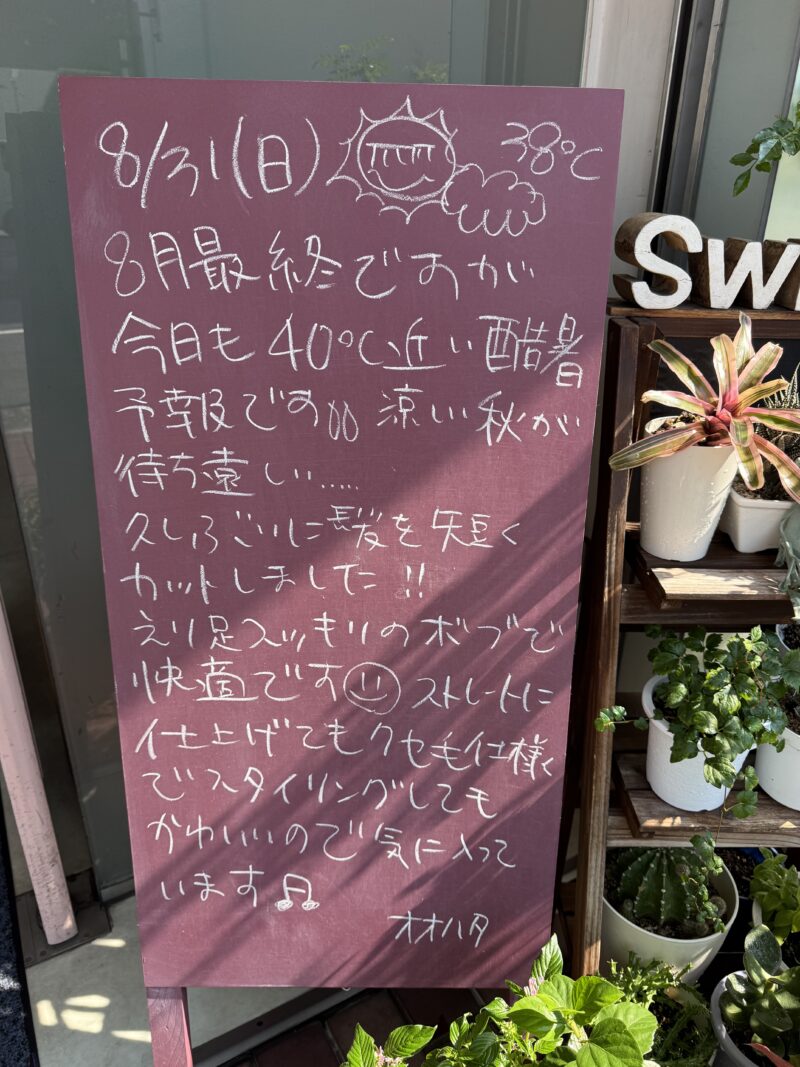 8/31(日) 38℃
8月最終ですが
今日も40℃近い酷暑
予報です 涼しい秋が
待ち遠しい.....
久しぶりに髪を短く
カットしました!!
えり足スッキリのボブで
快適です☺ストレートに
仕上げてもクセ毛仕様
でスタイリングしても
かわいいので気に入って
います♫
オオハタ
SW